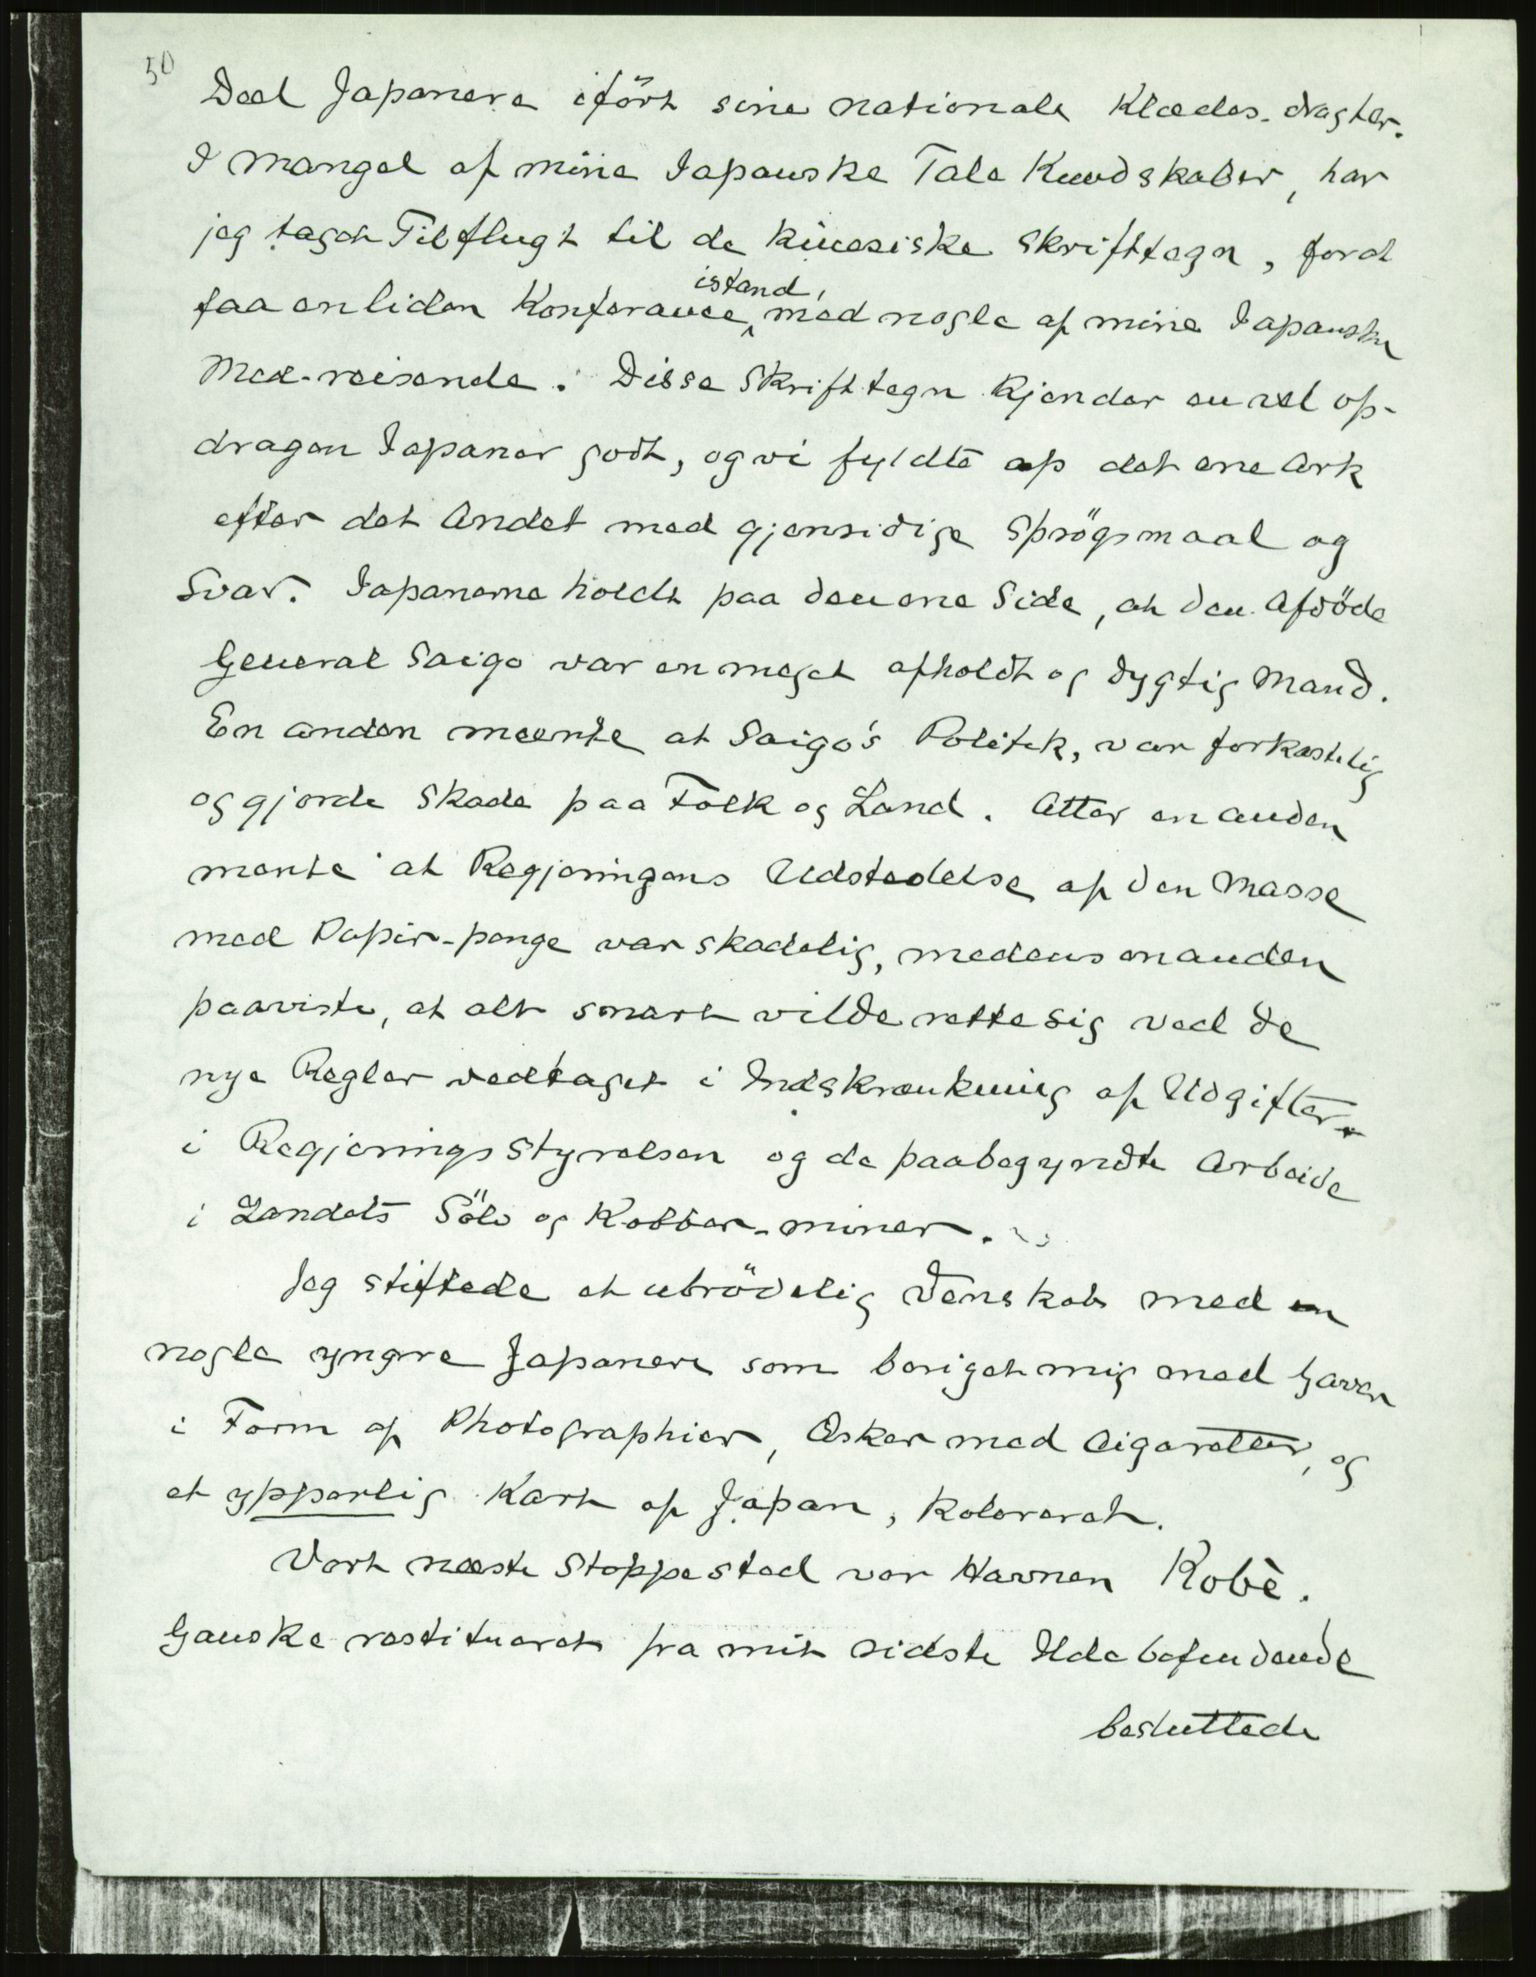 50
Deel Japanere iført sine nationale Klædes-dragter.
I Mangel af mine Japanske Tale Kundskaber, har
jeg taget Tilflugt til de kinesiske Skrifttegn, forat
faa en liden Konferance istand, med nogle af mine Japanske
Med-reisende. Disse Skrifttegn kjender en vel op-
dragen Japaner godt, og vi fyldte op det ene Ark
efter det Andet med gjensidige Spørgsmaal og
Svar. Japanerne holdt paa den ene Side, at den Afdöde
General Saigo var en meget afholdt og dygtig Mand.
En anden meente at Saigo's Politik, var forkastelig
og gjorde Skade paa Folk og Land. Atter en anden
mente at Regjeringens Udstedelse af den Masse
med Papir-penge var skadelig, medens en anden
paaviste, at alt snart vilde rette sig ved de
nye Regler vedtaget i Indskrænkning af Udgifter
i Regjerings Styrelsen og de paabegyndte Arbeide
i Landets Sölv og Kobber-miner.
Jeg stiftede et ubrödelig Venskab med en
nogle yngre Japanere som beriget mig med Gaver
i Form af Photographier, Æsker med Cigaretter, og
et ypperlig Kart af Japan, koloreret.
Vort næste Stoppested var Havnen Kobè.
Ganske restitueret fra mit sidste Ildebefindende
besluttede